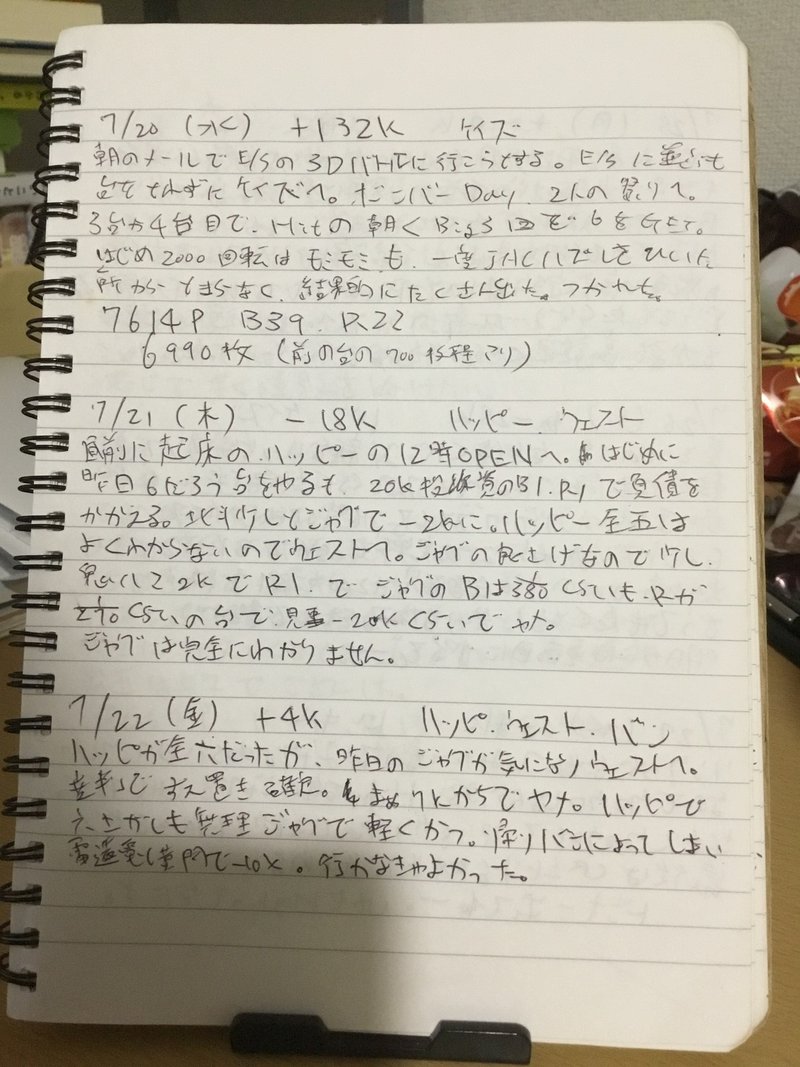 7/20 (水) +132K ケイズ
朝のメールでE/Sの3Dバトルに行こうとする。E/Sに並ぶも
台をとれずにケイズへ。ボンバーDay. 2人の祭りへ。
3台か4台目で、Hitの朝くBig3回で6をGET。
はじめ2000回転はモミモミも、一度
所からとまらなく、結果的にたくさん出た。つかれた。
7614P B39. R22
6990枚 (前の台の700枚程アリ)
7/21 (木) -18K ハッピー.ウェスト
昼前に起床の.ハッピーの12時OPENへ。はじめに
昨日6だろう台をやるも、20K投資のB1.R1で負債を
かかえる。北斗少しとジャグで-2Kに。ハッピー全五は
よくわからないのでウェストへ。ジャグの底上げなので少し
2KでR1.でジャグのBは1/380くらいも.Rが
1/210くらいの台で.見事-20Kくらいでヤメ。
ジャグは完全にわかりません。
7/22 (金) +4K ハッピ.ウェスト.バン
ハッピが全六だったが、昨日のジャグが気になりウェストへ。
すえ置き確認。7Kからでヤメ。ハッピで
さがしも無理ジャグで軽くかつ。帰りバンによってしまい
で-10K。行かなきゃよかった。